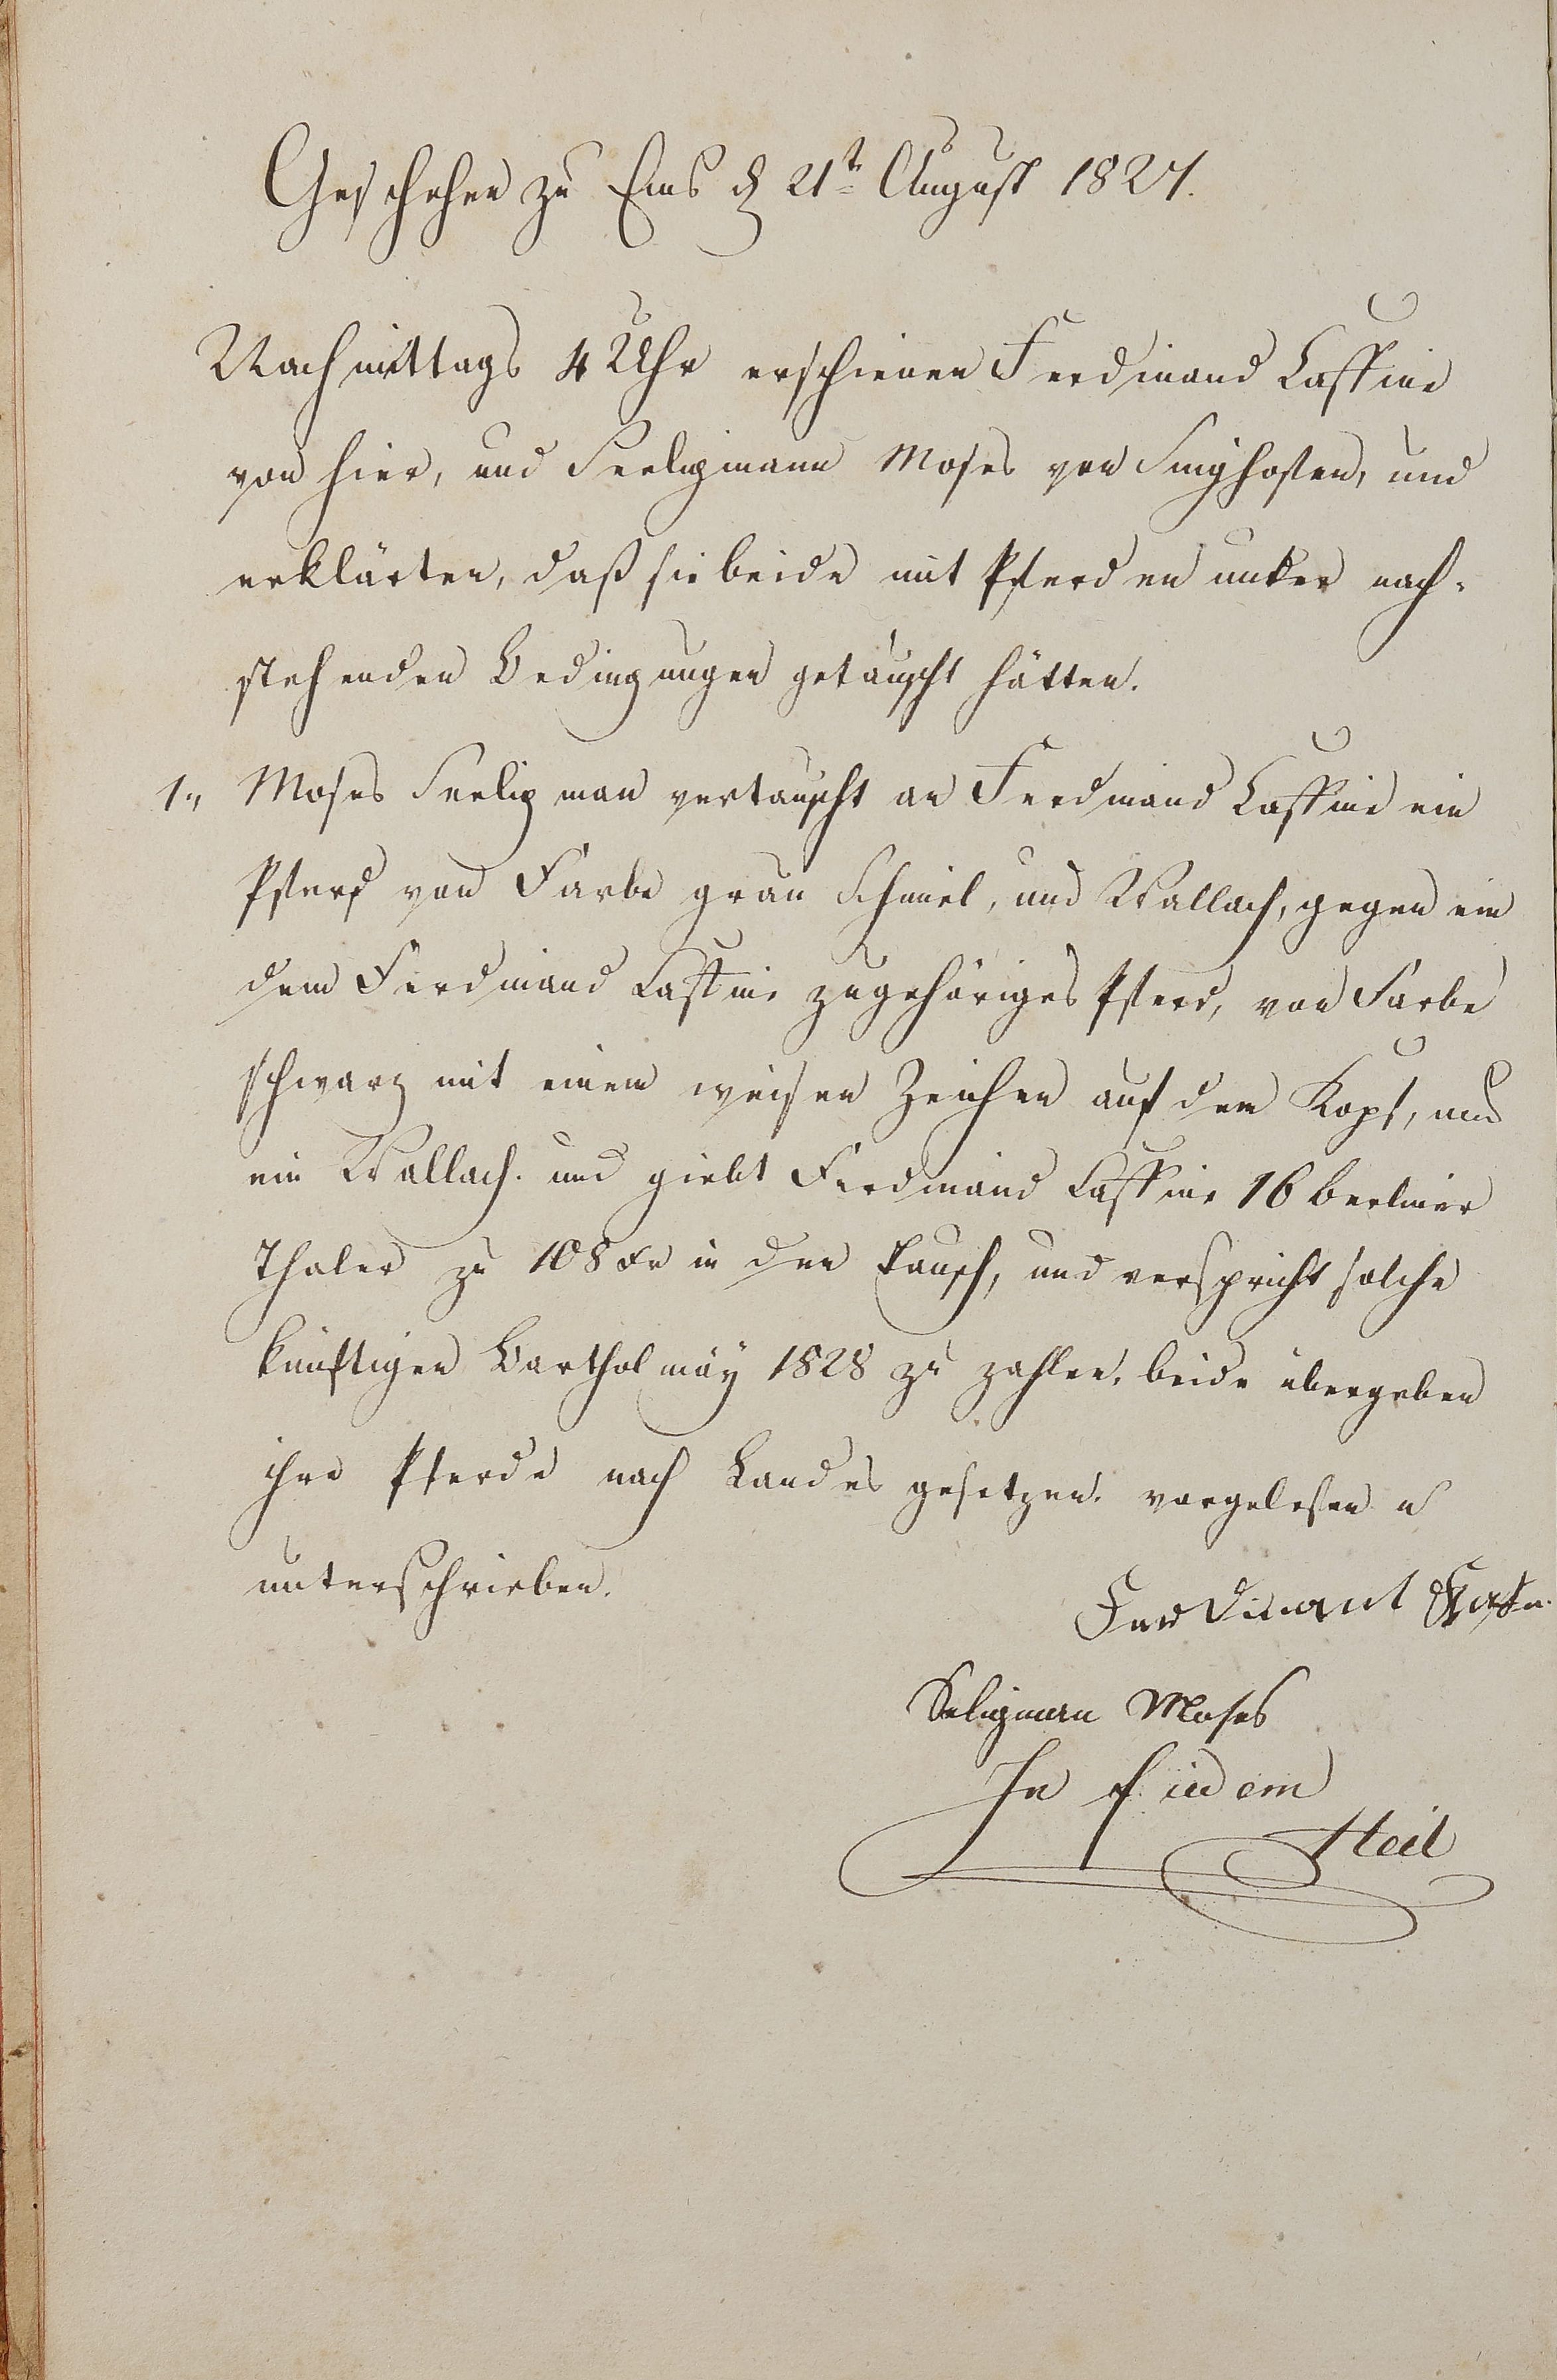 Geschehen zu Ems d 21t August 1827.
Nachmittags 4 Uhr erschienen Ferdinand Cassine
von hier, und Seeligmann Moses von Singhofen, und
erklärten, daß sie beide mit Pferden unter nach-
stehenden Bedingungen getauscht hätten.
1., Moses Seeligman vertauscht an Ferdinand Cassine ein
Pferd von Farbe grau Schimel, und Wallach, gegen ein
dem Ferdinand Cassine zugehöriges Pferd, von Farbe
schwarz mit einem weisen Zeichen auf dem Kopf, und
ein Wallach. und giebt Ferdinand Cassine 16 berliner
Thaler zu 108 xr in den Tausch, und verspricht solche
künftigen Bartholmäy 1828 zu zahlen, beide übergeben
ihre Pferde nach Landes gesetzen. vorgelesen u
unterschrieben.
Ferdinant
Seligman Moses
In fidem
Heil